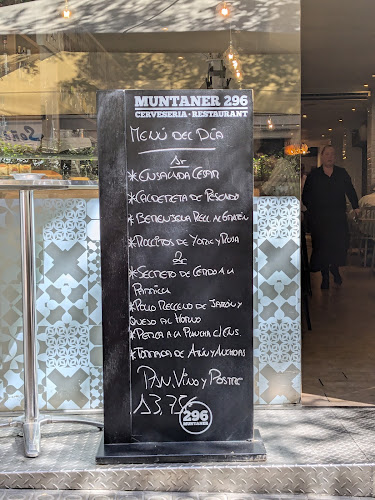 MUNTANER 296
CERVESERIA · RESTAURANT
MENÚ DEL DÍA
1r
* ENSALADA CESAR
* CALDERETA DE PESCADO
* BERENJENA RELL. AL GRATÉN
* ROLLITOS DE YORK Y PIÑA
2r
* SECRETO DE CERDO A LA
PARRILLA
* POLLO RELLENO DE JAMÓN Y
QUESO AL HORNO
* A LA PLANCHA C/ GUS.
* TOSTADA DE ATÚN Y ANCHOAS
PAN, VINO Y POSTRE
13,75€
296
MUNTANER